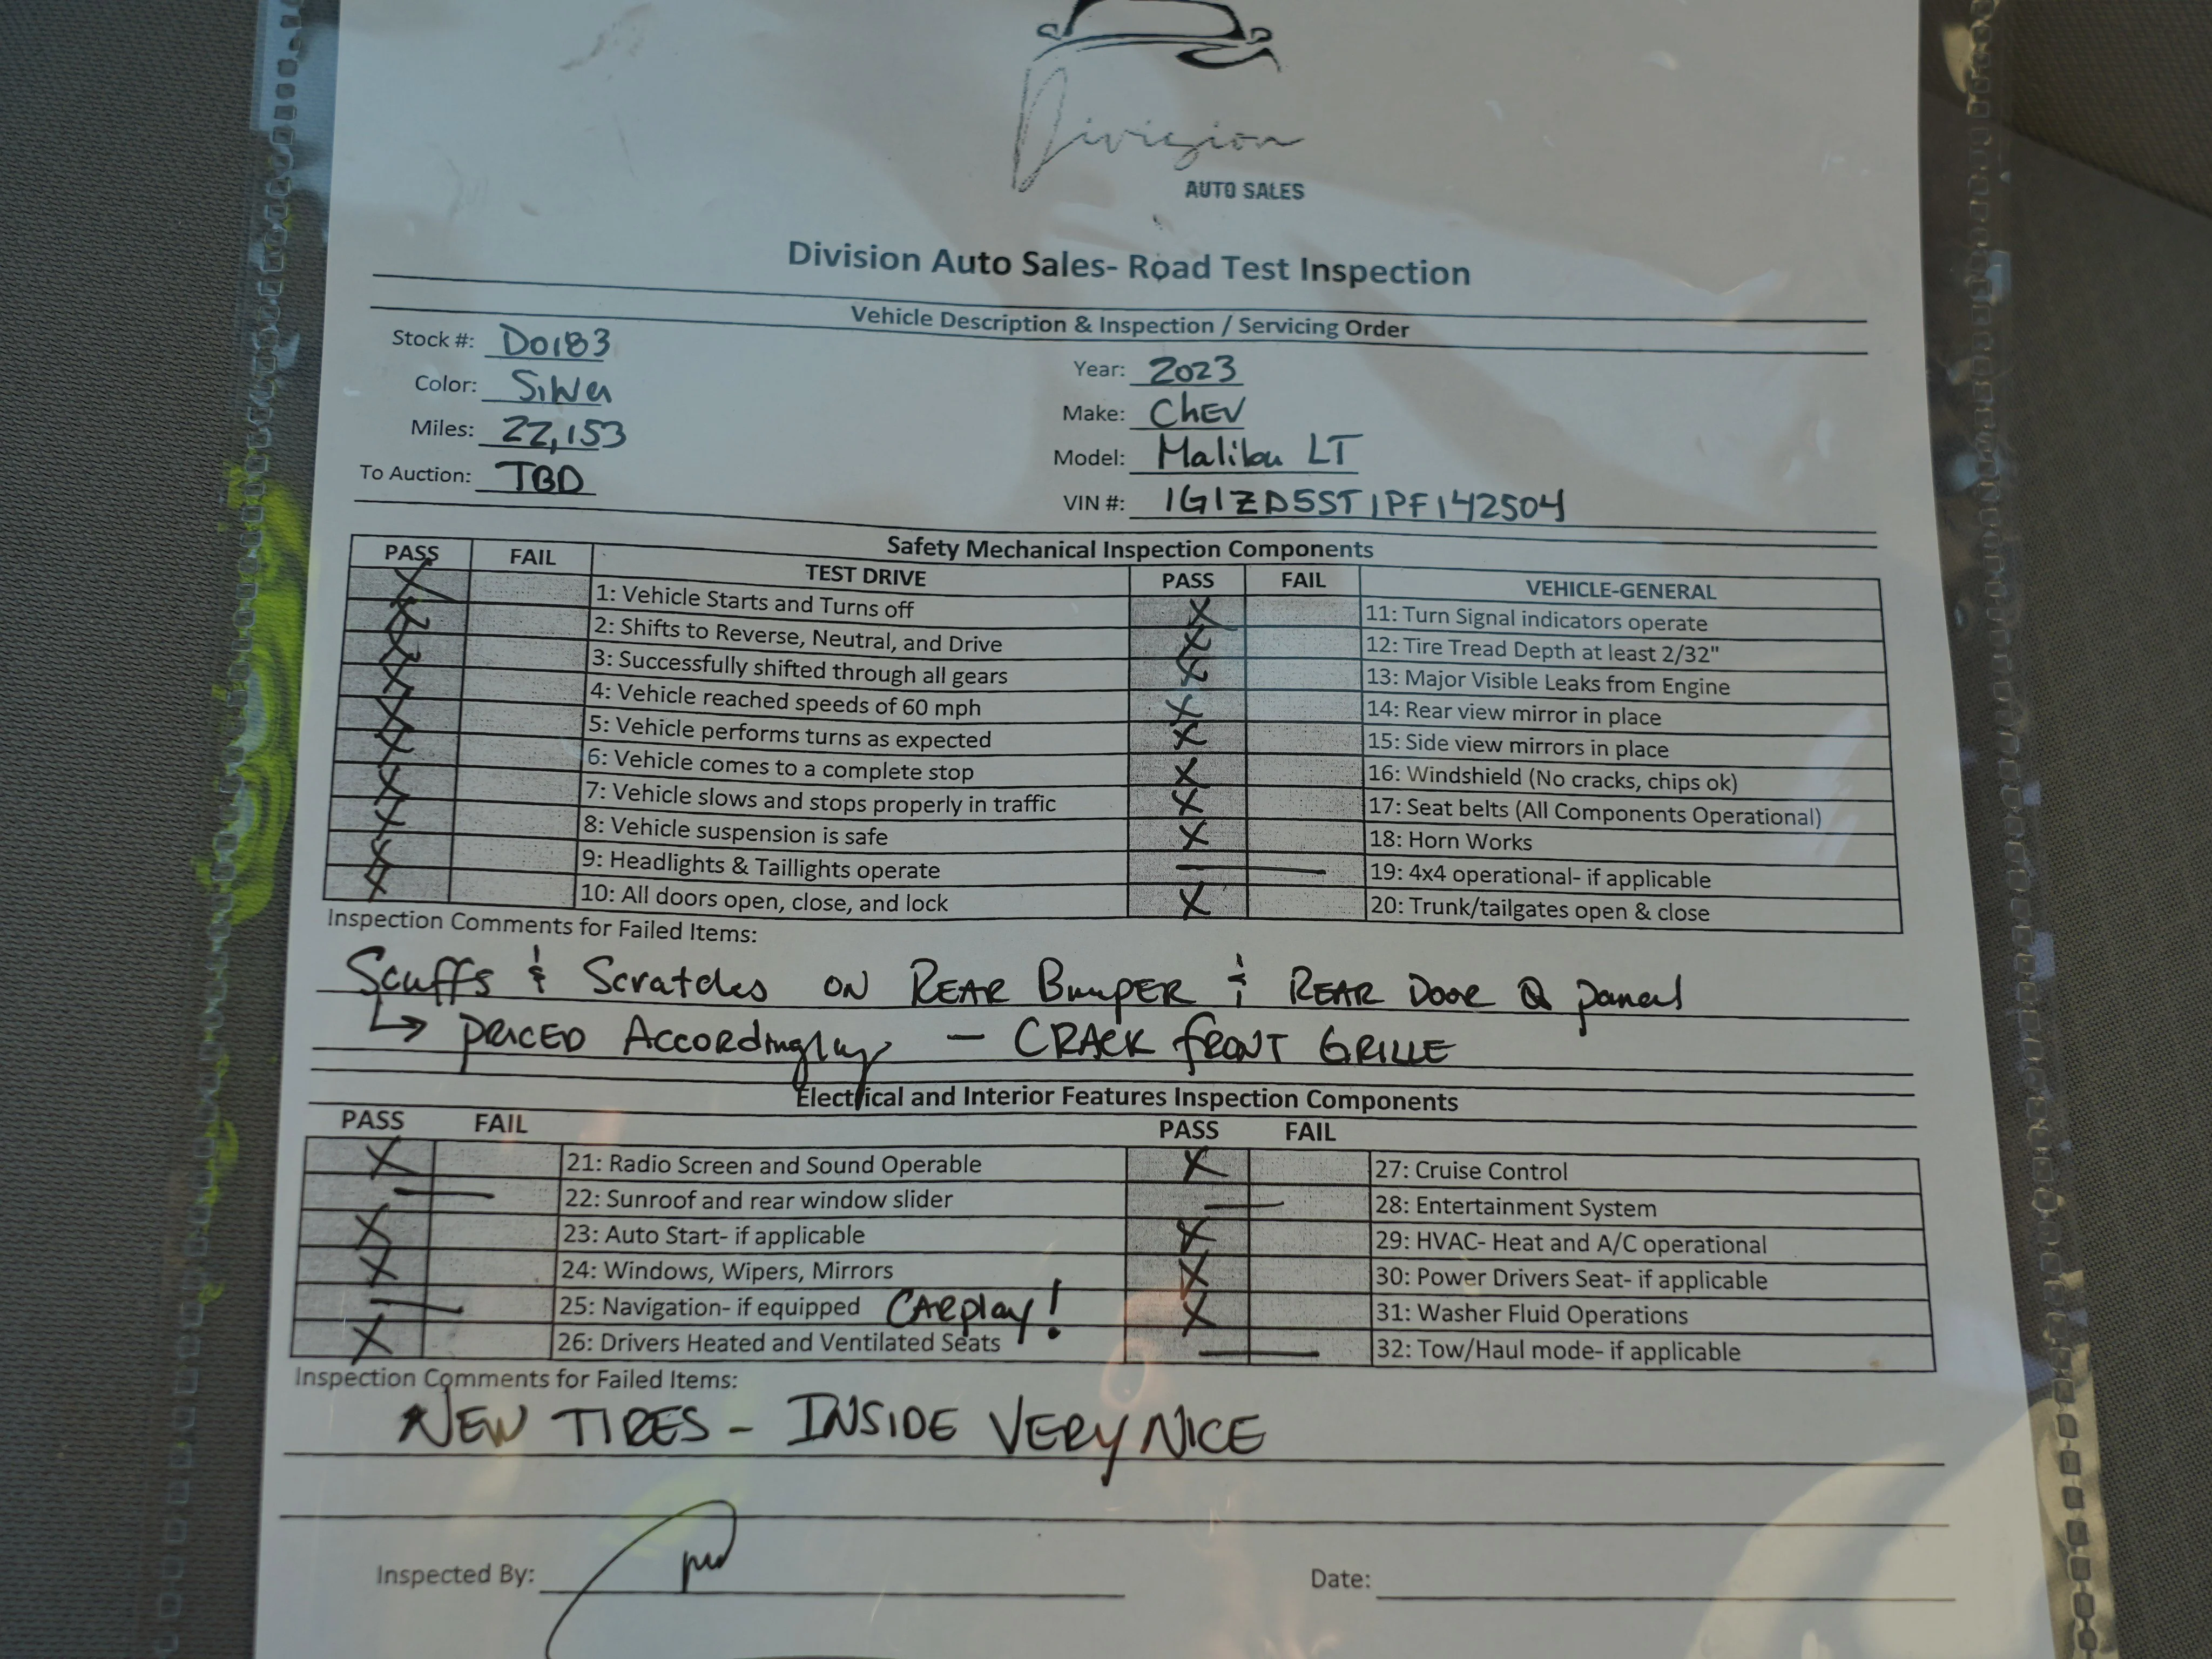 Division
AUTO SALES
Division Auto Sales- Road Test Inspection
Vehicle Description & Inspection / Servicing Order
Stock #: D0183
Color: Silver
Miles: 22,153
To Auction: TBD
Year: 2023
Make: CHEV
Model: Malibu LT
VIN #: 1G1ZD5ST1PF142504
Safety Mechanical Inspection Components
PASS FAIL TEST DRIVE PASS FAIL VEHICLE-GENERAL
X 1: Vehicle Starts and Turns off X 11: Turn Signal indicators operate
X 2: Shifts to Reverse, Neutral, and Drive X 12: Tire Tread Depth at least 2/32"
X 3: Successfully shifted through all gears X 13: Major Visible Leaks from Engine
X 4: Vehicle reached speeds of 60 mph X 14: Rear view mirror in place
X 5: Vehicle performs turns as expected X 15: Side view mirrors in place
X 6: Vehicle comes to a complete stop X 16: Windshield (No cracks, chips ok)
X 7: Vehicle slows and stops properly in traffic X 17: Seat belts (All Components Operational)
X 8: Vehicle suspension is safe X 18: Horn Works
X 9: Headlights & Taillights operate — 19: 4x4 operational- if applicable
X 10: All doors open, close, and lock X 20: Trunk/tailgates open & close
Inspection Comments for Failed Items:
Scuffs & Scratches ON REAR BumpER & REAR DooR Q panel
↳ PRICED AccoRdingly — CRACK fRONT GRILLE
Electrical and Interior Features Inspection Components
PASS FAIL PASS FAIL
X 21: Radio Screen and Sound Operable X 27: Cruise Control
— 22: Sunroof and rear window slider — 28: Entertainment System
X 23: Auto Start- if applicable X 29: HVAC- Heat and A/C operational
X 24: Windows, Wipers, Mirrors X 30: Power Drivers Seat- if applicable
— 25: Navigation- if equipped CARplay! X 31: Washer Fluid Operations
X 26: Drivers Heated and Ventilated Seats — 32: Tow/Haul mode- if applicable
Inspection Comments for Failed Items:
NEW TIRES - INSIDE VERY NICE
Inspected By:
Date: